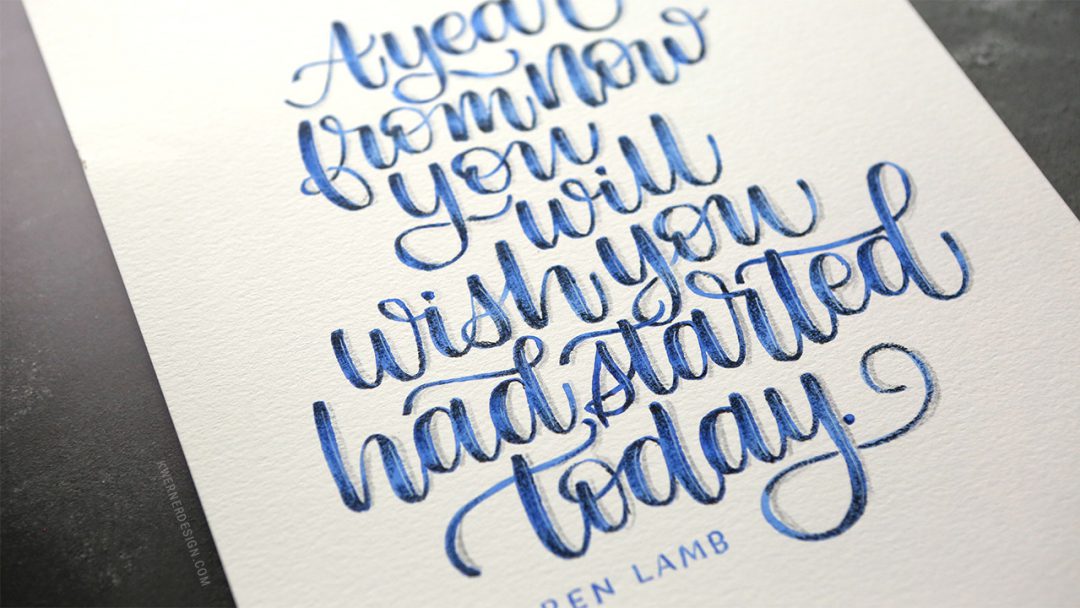 A year
from now
you will
wish you
had started
today.
LAMB
KWERNERDESIGN.COM